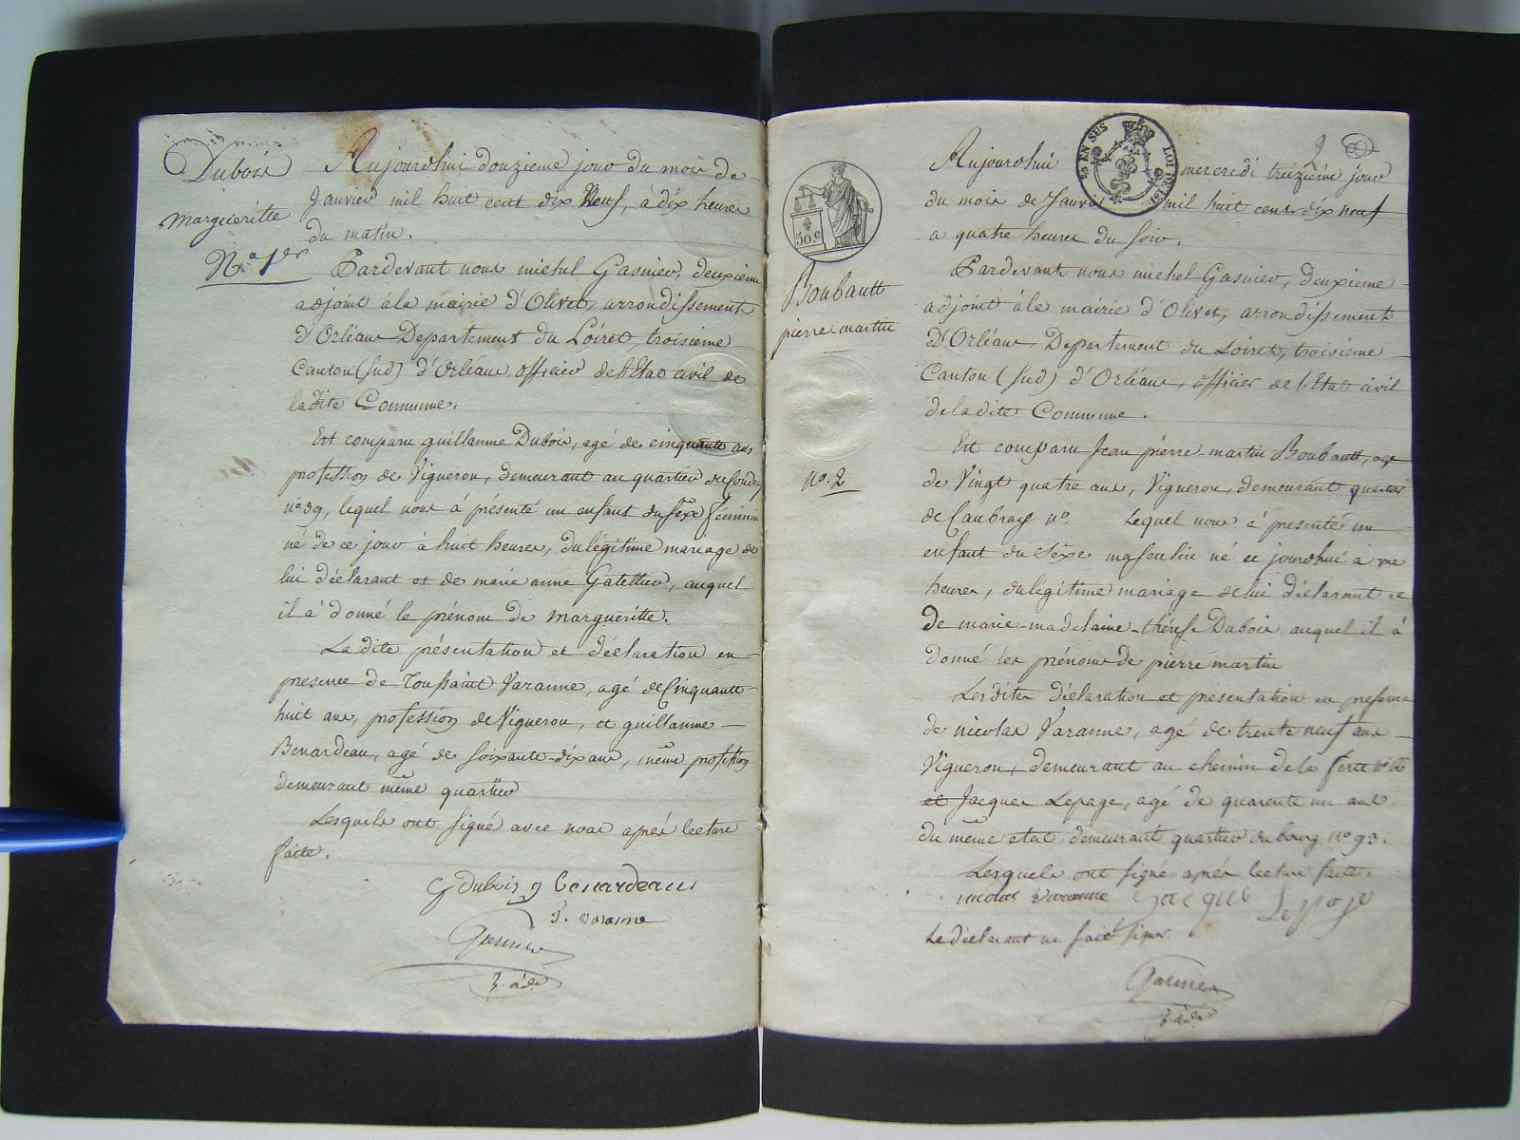 Dubois
Margueritte
No 1er
Aujourdhui douzieme jour du mois de
Janvier mil huit cent dix Neuf, à dix heures
du matin.
Pardevant nous michel Gasnier, deuxieme
adjoint à la mairie d'Olivet, arrondissement
d'Orléans Departement du Loiret, troisieme
Canton (sud) d'Orléans officier de l'Etat civil de
ladite Commune.
Est comparu guillaume Dubois, agé de cinquante ans
profession de Vigneron, demeurant au quartier
no 39, lequel nous à présenté un enfant du sexe féminin
né de ce jour à huit heures, du légitime mariage de
lui déclarant et de marie anne Gatellier, auquel
il a donné le prénom de margueritte.
La dite présentation et déclaration en
presence de Toussaint Varanne, agé de Cinquante
huit ans, profession de Vigneron, et guillaume
Benardeau, agé de soixante-dix ans, même profession
demeurant même quartier
Lesquels ont signé avec nous après lecture
faite.
G dubois g benardeau
T. varanne
Gasnier
2. adj
2
25 EN SUS LOI DE 1816
30 c
Boubault
pierre martin
no. 2
Aujourdhui mercredi treizieme jour
du mois de Janvier mil huit cent dix neuf
a quatre heures du soir.
Pardevant nous michel Gasnier, deuxieme
adjoint à la mairie d'Olivet, arrondissement
d'Orléans Departement du Loiret, troisieme
Canton (sud) d'Orléans, officier de l'Etat civil
de la dite Commune.
Est comparu Jean pierre martin Boubault, agé
de Vingt quatre ans, Vigneron, demeurant quartier
de Caubray no Lequel nous a presenté un
enfant du sèxe masculin né ce jourdhui a une
heures, du légitime mariage de lui déclarant et
De marie-madelaine-thérese Dubois auquel il à
donné les prénoms de pierre martin
Lesdites déclaration et presentation en presence
de nicolas Varanne, agé de trente neuf ans
Vigneron, demeurant au chemin de la ferté no
et Jacques Lepage, agé de quarente un ans
du même etat demeurant quartier du bourg no 93.
Lesquels ont signé après lecture faite.
nicolas varanne Jacque Lepage
Le déclarant ne sait signer
Gasnier
2. adj